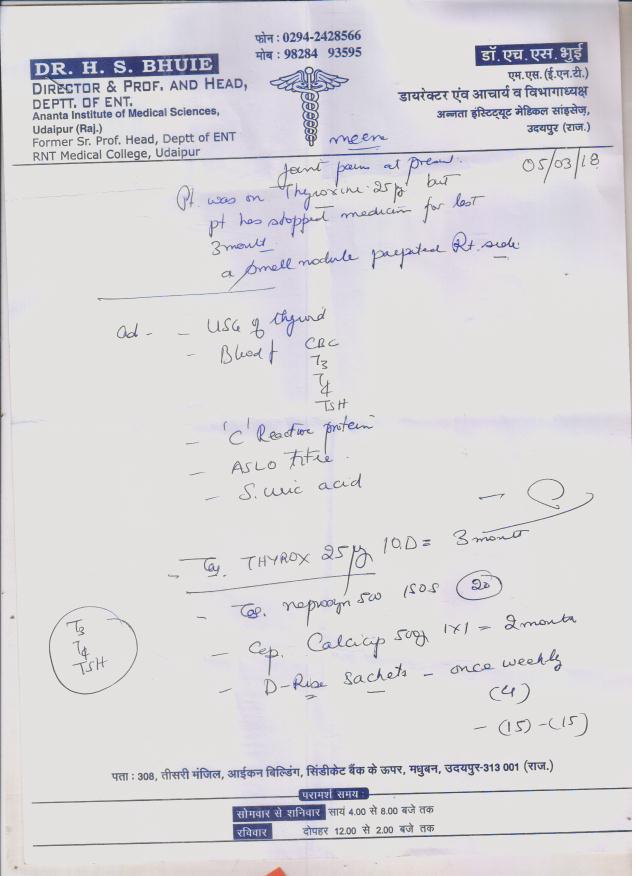 फोन : 0294-2428566
मोब : 98284 93595
DR. H. S. BHUIE
DIRECTOR & PROF. AND HEAD,
DEPTT. OF ENT.
Ananta Institute of Medical Sciences,
Udaipur (Raj.)
Former Sr. Prof. Head, Deptt of ENT
RNT Medical College, Udaipur
डॉ. एच. एस. भुई
एम.एस. (ई.एन.टी.)
डायरेक्टर एंव आचार्य व विभागाध्यक्ष
अन्नता इंस्टिट्यूट मेडिकल सांइसेज,
उदयपुर (राज.)
meena
05/03/18
Joint pain at presen
Pt. was on Thyroxine 25 μg but
pt has stopped medicin for last
3 month
a small nodule palpated Rt. side
Ad - - USG of thyroid
- Blood f CBC
T3
T4
TSH
- 'C' Reactive protein
- ASLO titre
- S. uric acid
- Tab. THYROX 25 μg 1OD = 3 month
- Tab. neprosyn 500 1SOS (20)
- Cap. Calcicip 50g 1x1 = 2 months
- D-Rise Sachets - once weekly
(4)
- (15) - (15)
T3
T4
TSH
पता : 308, तीसरी मंजिल, आईकन बिल्डिंग, सिंडीकेट बैंक के ऊपर, मधुबन, उदयपुर-313 001 (राज.)
परामर्श समय :
सोमवार से शनिवार सायं 4.00 से 8.00 बजे तक
रविवार दोपहर 12.00 से 2.00 बजे तक